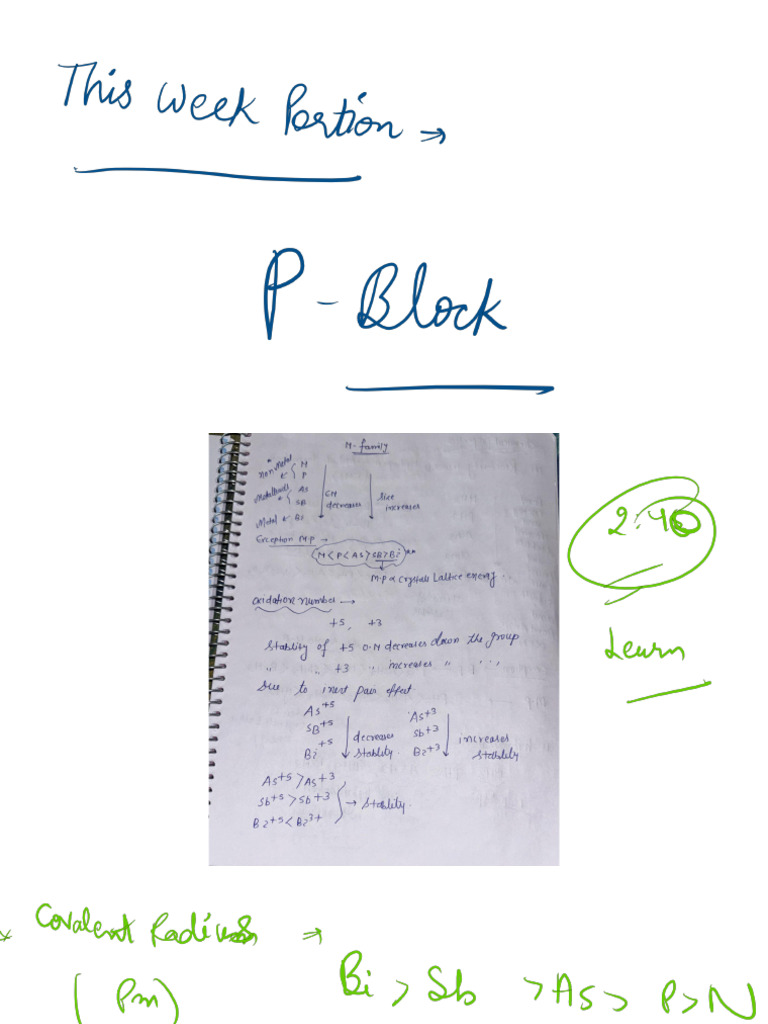 This week Portion →
P - Block
N- family
Non metal
N
P
Metalloids
As
SB
Metal
Bi
EN
decreases
Size
increases
Exception M.P →
N < P < As > SB > Bi **
M.P ∝ Crystals Lattice energy...
Oxidation number →
+5, +3
Stability of +5 O.N decreases down the group
" " +3 " increases " " " "
Due to inert pair effect
As+5
SB+5
Bi+5
decreases
stability.
As+3
Sb+3
Bi+3
increases
stability
As+5 > As+3
Sb+5 > Sb+3
→ stability.
Bi+5 < Bi3+
2:40
Learn
Covalent Radius →
(Pm)
Bi > Sb > As > P > N